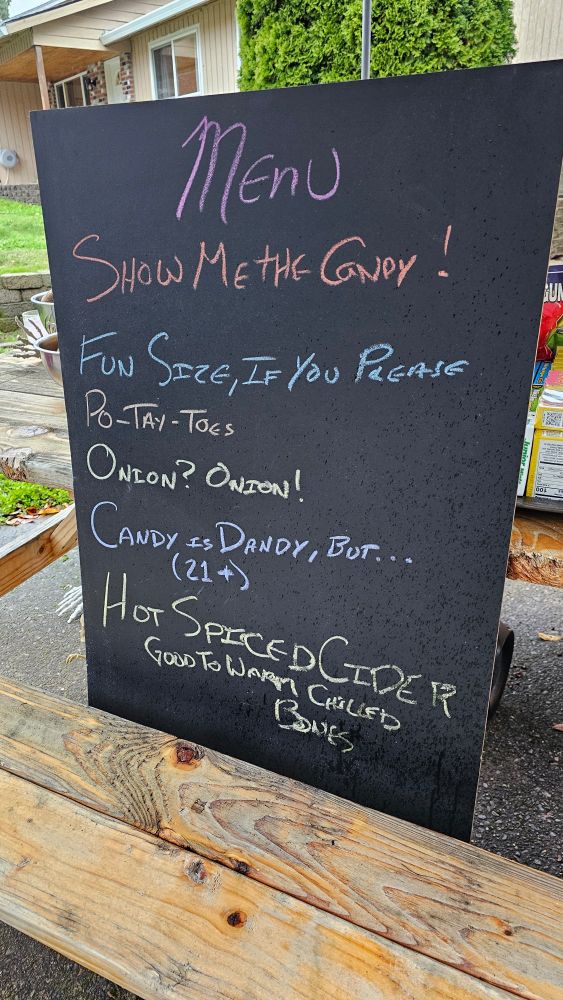 Menu
Show Me the Candy!
Fun Size, If You Please
Po-Tay-Toes
Onion? Onion!
Candy is Dandy, But...
(21+)
Hot Spiced Cider
Good To Warm Chilled
Bones